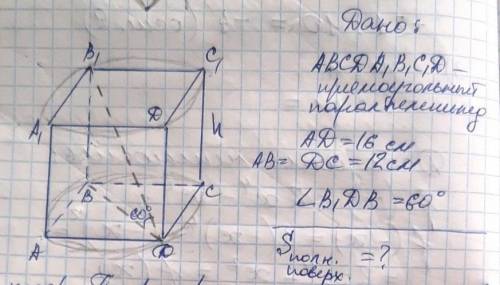 Дано:
ABCDA₁B₁C₁D –
прямоугольный
параллелепипед
AD = 16 см
AB = DC = 12 см
∠B₁DB = 60°
Sполн. поверх. = ?
B₁
C₁
A₁
D
h
B
C
60°
A
D